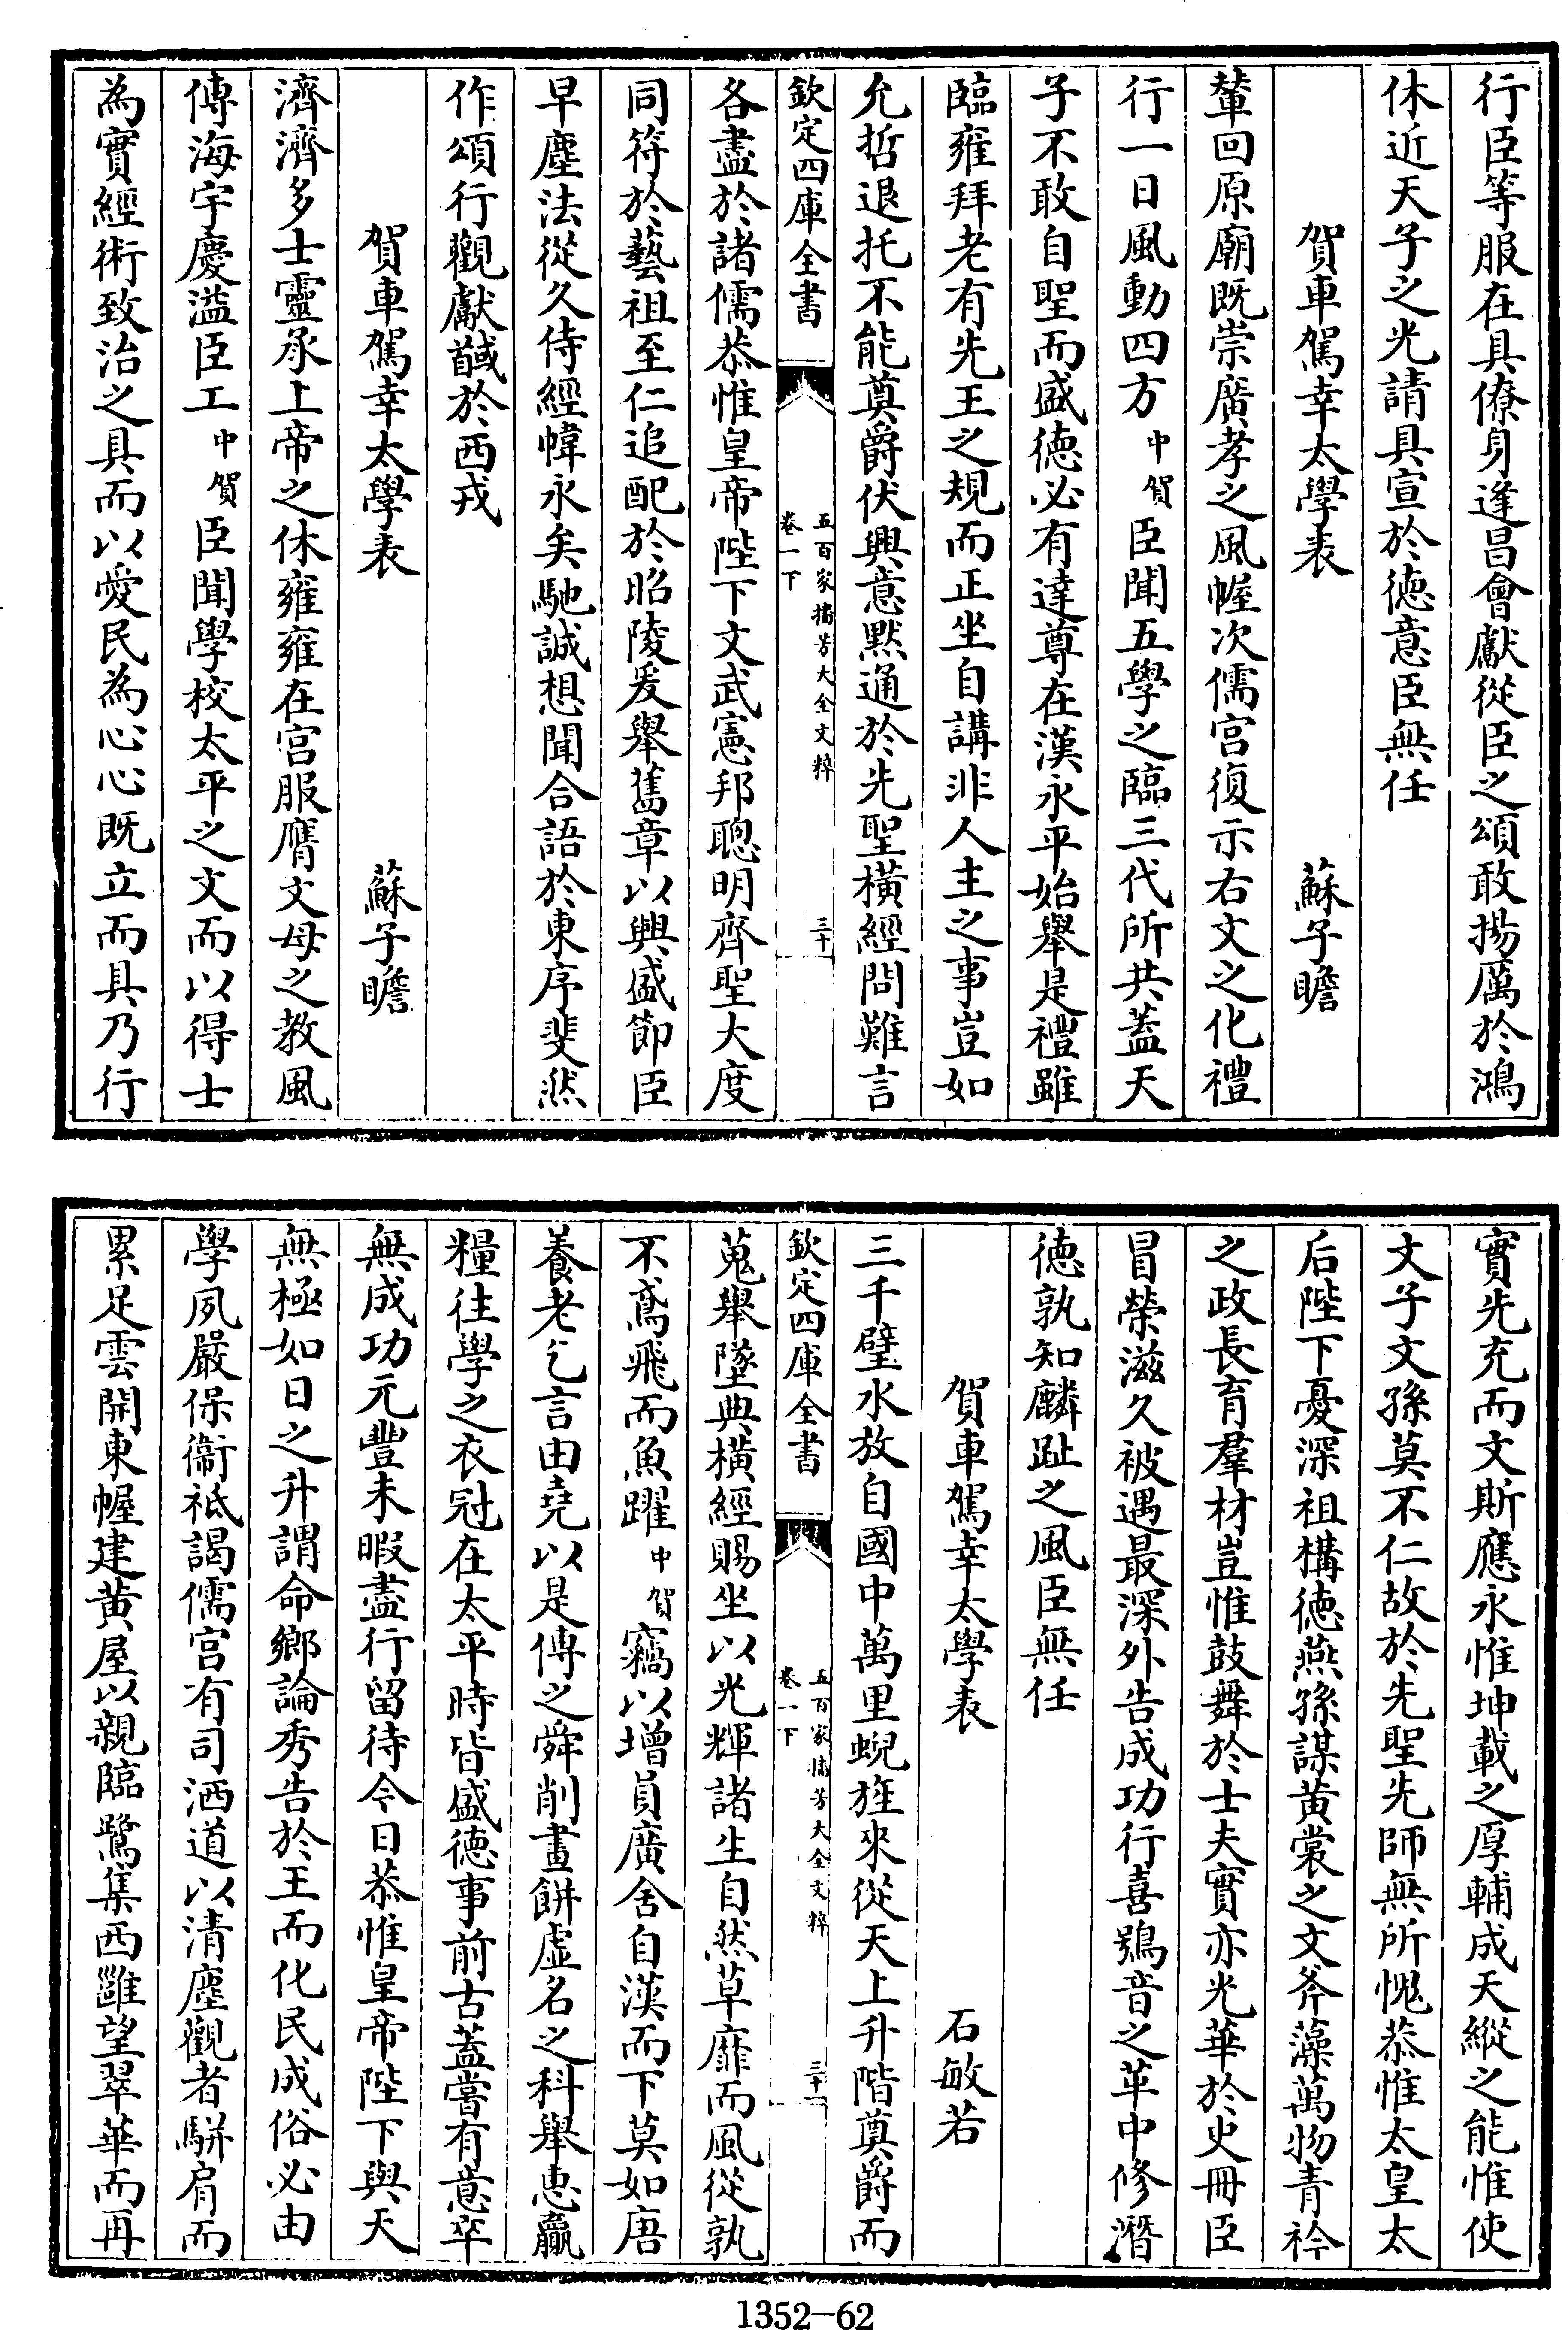 行臣等服在具僚身逢昌會獻從臣之頌敢揚厲於鴻
休近天子之光請具宣於徳意臣無任
賀車駕幸太學表　蘇子瞻
輦回原廟既崇廣孝之風幄次儒宫復示右文之化禮
行一日風動四方中賀臣聞五學之臨三代所共蓋天
子不敢自聖而盛徳必有達尊在漢永平始舉是禮雖
臨雍拜老有先王之規而正坐自講非人主之事豈如
允哲退托不能奠爵伏興意默通於先聖橫經問難言
欽定四庫全書
五百家播芳大全文粹
卷一下
三十
各盡於諸儒恭惟皇帝陛下文武憲邦聰明齊聖大度
同符於藝祖至仁追配於昭陵爰舉舊章以興盛節臣
早塵法從久侍經幃永矣馳誠想聞合語於東序斐然
作頌行觀獻馘於西戎
賀車駕幸太學表　蘇子瞻
濟濟多士靈承上帝之休雍雍在宫服膺文母之教風
傳海宇慶溢臣工中賀臣聞學校太平之文而以得士
為實經術致治之具而以愛民為心心既立而具乃行
實先充而文斯應永惟坤載之厚輔成天縱之能惟使
文子文孫莫不仁故於先聖先師無所愧恭惟太皇太
后陛下憂深祖構徳燕孫謀黄裳之文斧藻萬物青衿
之政長育羣材豈惟鼓舞於士夫實亦光華於史冊臣
冒榮滋久被遇最深外告成功行喜鴞音之革中修潛
徳孰知麟趾之風臣無任
賀車駕幸太學表　石敏若
三千璧水放自國中萬里蜺旌來從天上升階奠爵而
欽定四庫全書
五百家播芳大全文粹
卷一下
三十一
蒐舉墜典橫經賜坐以光輝諸生自然草靡而風從孰
不鳶飛而魚躍中賀竊以增員廣舍自漢而下莫如唐
養老乞言由堯以是傳之舜削畫餅虛名之科舉惠羸
糧往學之衣冠在太平時皆盛徳事前古蓋嘗有意卒
無成功元豐未暇盡行留待今日恭惟皇帝陛下與天
無極如日之升謂命鄉論秀告於王而化民成俗必由
學夙嚴保衞祗謁儒宫有司洒道以清塵觀者駢肩而
累足雲開東幄建黄屋以親臨鷺集西雝望翠華而再
1352-62